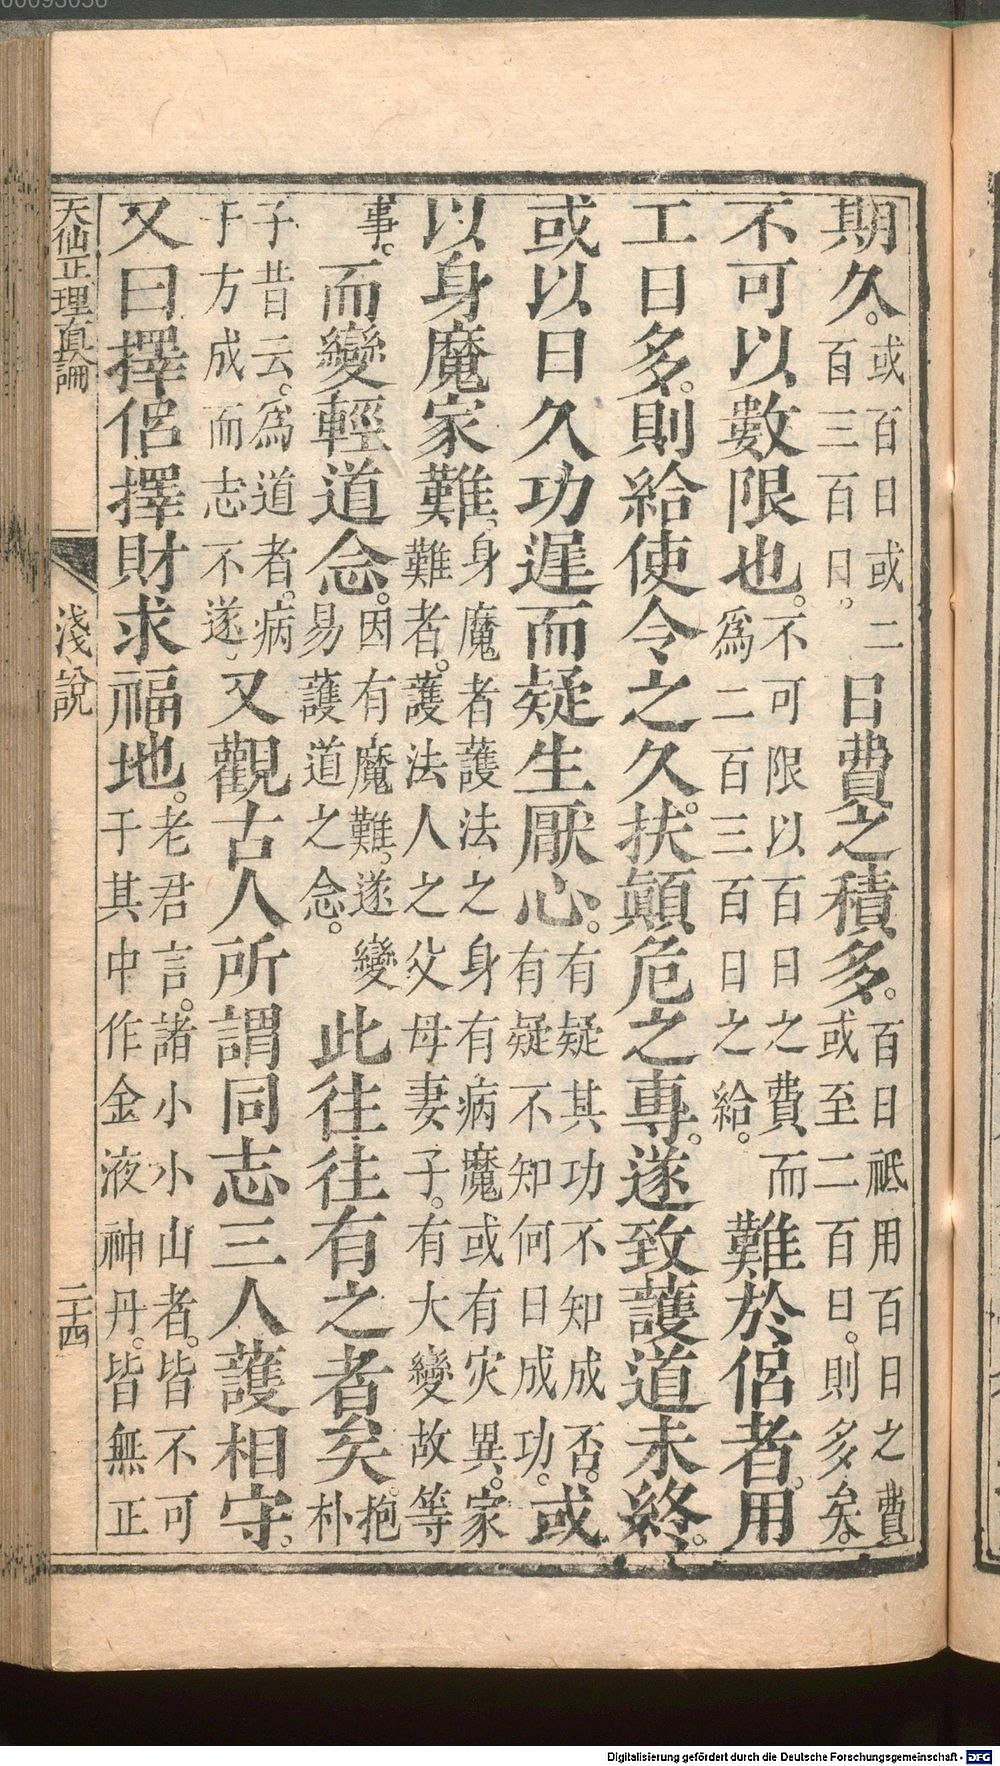 期久。或百日或二百三百日。日費之積多。百日祗用百日之費或至二百日。則多矣。
不可以數限也。不可限以百日之費而爲二百三百日之給。難於侶者。用
工日多。則給使令之久。扶顛危之專。遂致護道未終。
或以日久功遲而疑生厭心。有疑其功不知成否。有疑不知何日成功。或
以身魔家難。身魔者護法之身有病魔或有灾異。家難者。護法人之父母妻子。有大變故等
事。而變輕道念。因有魔難。遂變易護道之念。此往往有之者矣。抱朴
子昔云。爲道者。病于方成而志不遂。又觀古人所謂同志三人護相守。
又曰擇侶擇財求福地。老君言。諸小小山者。皆不可于其中作金液神丹。皆無正
天仙正理直論
淺說
二十四
00093056
Digitalisierung gefördert durch die Deutsche Forschungsgemeinschaft - DFG